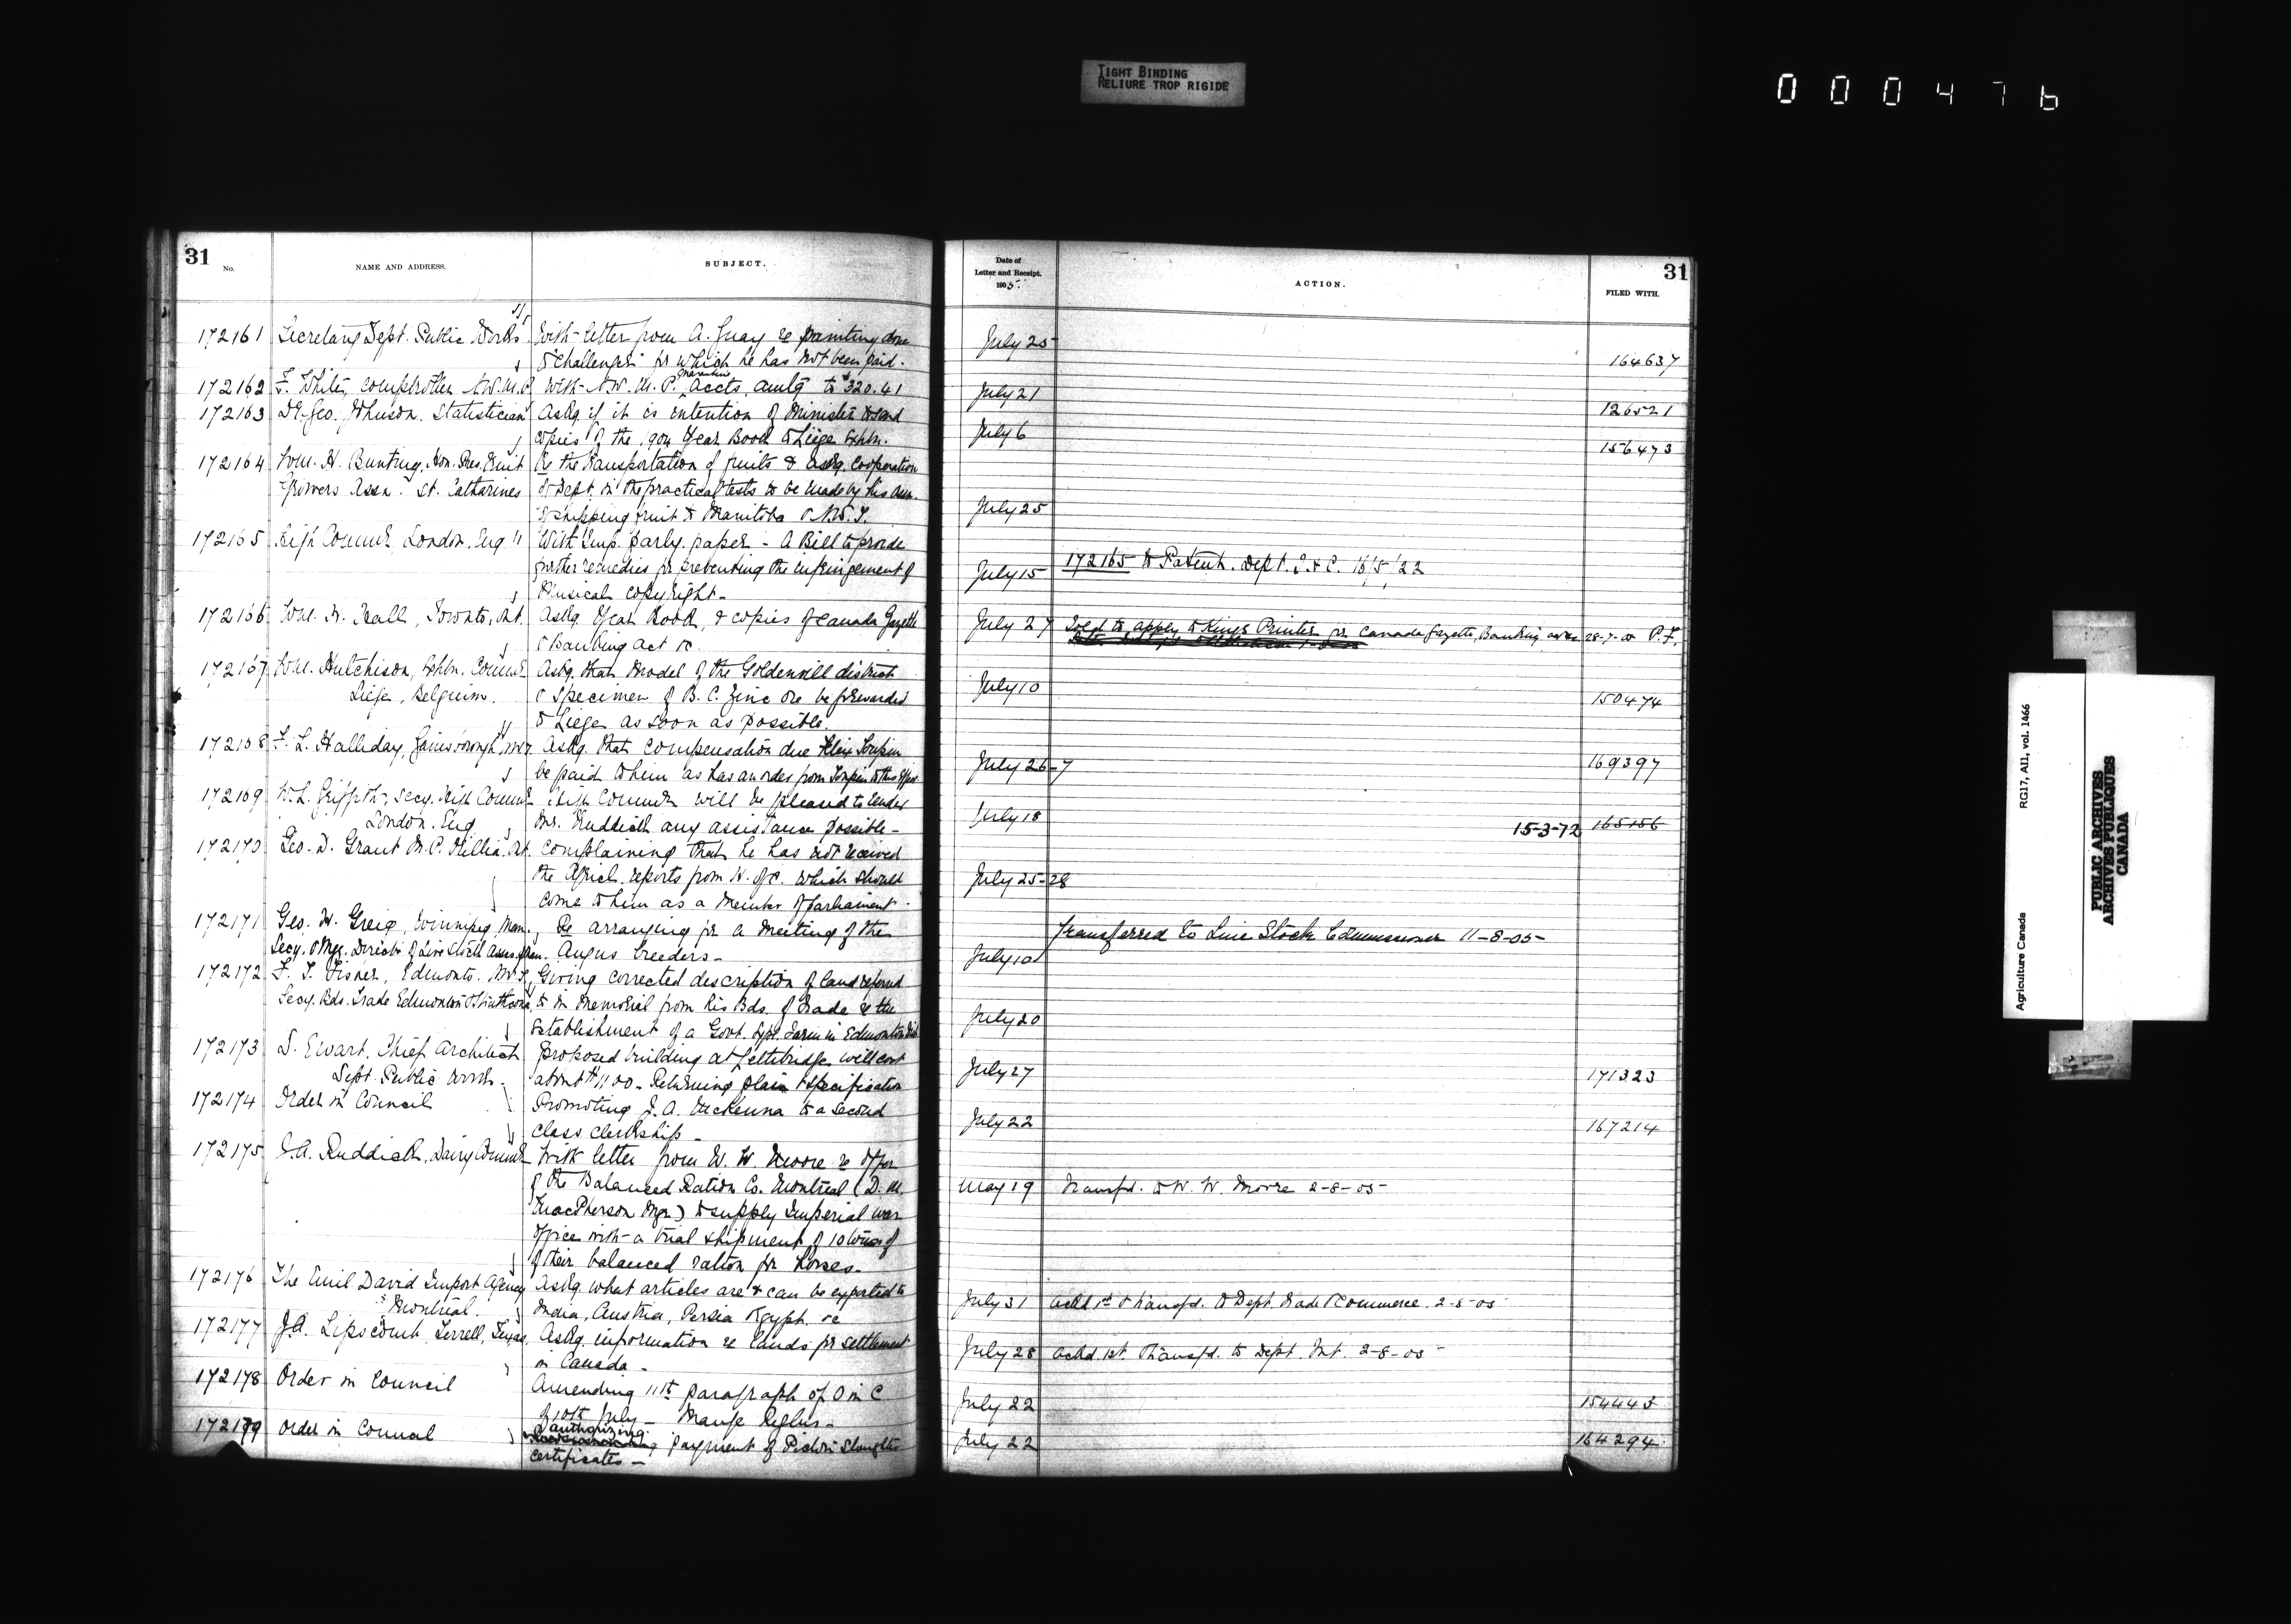 TIGHT BINDING
RELIURE TROP RIGIDE
000476
31
No.
NAME AND ADDRESS.
SUBJECT.
172161 Secretary Dept. Public Works With letter from A. re Painting done
to "Challenger" for which he has not been paid.
172162 F. White, Comptroller N.W.M.P. With N.W.M.P. Accts. amtg to $320.41
172163 Dr. Geo. Johnson. Statistician Askg. if it is intention of Minister to send
copies of the 1904 Year Book to Liège Exhbn.
172164 Wm. H. Bunting, Hon. Pres. Fruit Re the transportation of fruits & askg. cooperation
Growers Assn. St. Catharines of Dept. in the practical tests to be made by his assn.
of shipping fruit to Manitoba & N.W.T.
172165 High Commr. London. Eng With Imp. parly. paper - A Bill to provide
further remedies for preventing the infringement of
Musical copyright -
172166 Wm. H. Hall, Toronto, Ont. Askg. Year Book, & copies of Canada Gazette
& Banking Act &c.
172167 Wm. Hutchison, Exhbn. Commr. Askg. that Model of the Goldenvill district
Liège, Belgium. & specimen of B.C. Zinc ore be forwarded
to Liège as soon as possible.
172168 F. L. Halliday, Gainsborough, NWT. Askg. that compensation due
be paid to him as has an order from to this effect.
172169 W. L. Griffith, Secy. High Commr. High Commr. will be pleased to render
London. Eng Mr. Ruddick any assistance possible -
172170 Geo. D. Grant M.P. Orillia. Ont. Complaining that he has not received
the Agricl. reports from H. of C. which should
come to him as a Member of Parliament.
172171 Geo. H. Greig, Winnipeg Man., Re arranging for a meeting of the
Secy. & Mgr. Director of Live Stock Assns. Man. Angus breeders -
172172 F. T. Fisher, Edmonton. N.W.T. Giving corrected description of land referred
Secy. Bds. Trade Edmonton & Strathcona to in Memorial from his Bds. of Trade re the
establishment of a Govt. Expl. Farm in Edmonton Dist.
172173 D. Ewart, Chief Architect Proposed building at Lethbridge will cost
Dept. Public Works - about $1100 - Returning plan & specification
172174 Order in Council Promoting J. A. McKenna to a second
class clerkship -
172175 J. A. Ruddick, Dairy Commr. With letter from W. W. Moore re offer
of the Balanced Ration Co. Montreal (D. M.
MacPherson Mgr.) to supply Imperial War
Office with a trial shipment of 10 tons of
of their balanced ration for horses -
172176 The Emil David Import Agency Askg. what articles are & can be exported to
Montreal. India, Austria, Persia Egypt. &c
172177 J. A. Lipscomb, Terrell, Texas, Askg. information re lands for settlement
in Canada -
172178 Order in Council Amending 11th paragraph of O in C
of 10th July - Mange Reglns -
172179 Order in Council authorizing payment of Pictou Slaughter
certificates -
Date of
Letter and Receipt.
1905.
ACTION.
FILED WITH.
31
July 25 164637
July 21 126521
July 6 156473
July 25
July 15 172165 to Patent. Dept. T & C. 16/5/22
July 27 Told to apply to King's Printer for Canada Gazette, Banking act &c 28-7-05 P.F.
July 10 150474
July 26-7 169397
July 18 15-3-72 165156
July 25-28
July 10 Transferred to Live Stock Commissioner 11-8-05-
July 20
July 27 171323
July 22 167214
May 19 Transfd. to W. W. Moore 2-8-05-
July 31 Ackd 1st & transfd. to Dept. Trade & Commerce. 2-8-05
July 28 Ackd. 1st. Transfd. to Dept. Int. 2-8-05-
July 22 154443
July 22 164294
Agriculture Canada RG17, AII, vol. 1466
PUBLIC ARCHIVES
ARCHIVES PUBLIQUES
CANADA